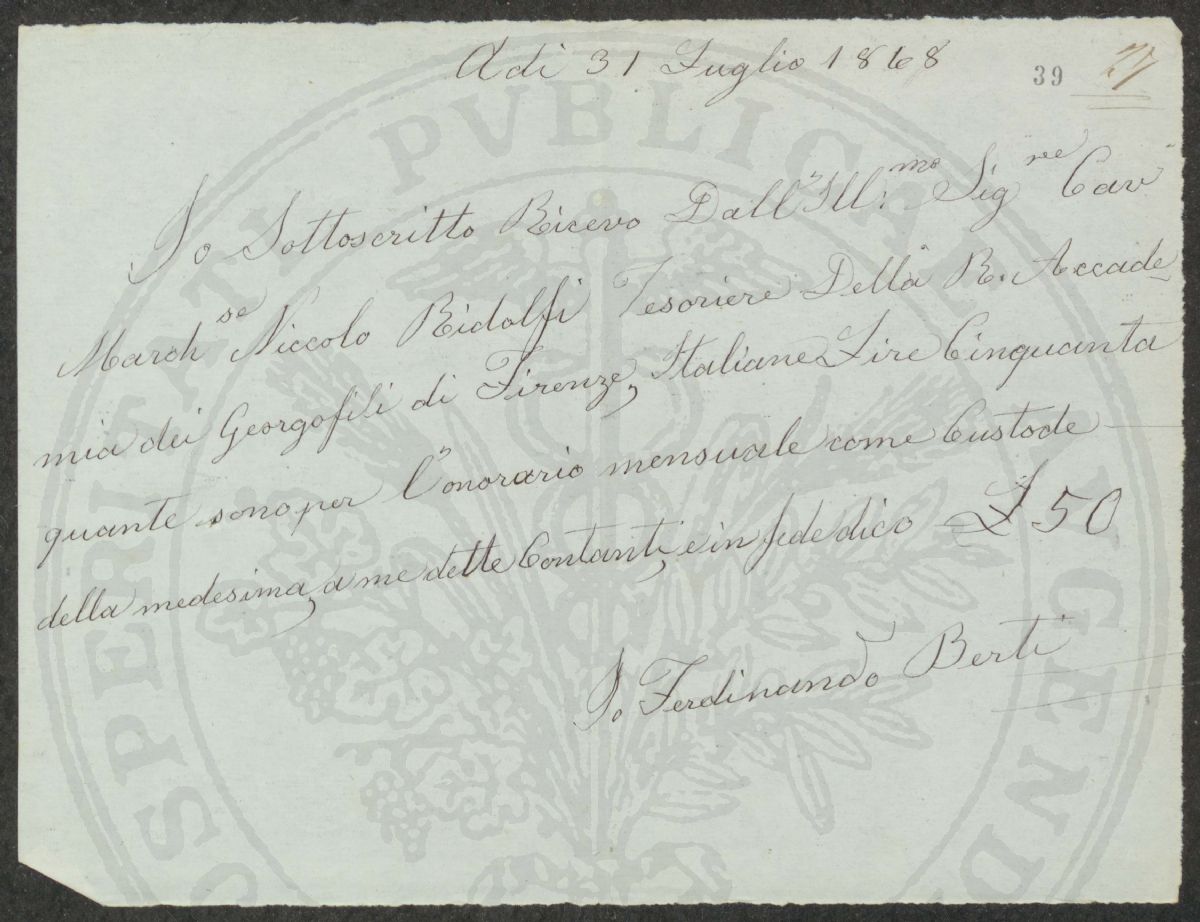 Adì 31 Luglio 1868
39 27
Io Sottoscritto Ricevo Dall'Ill:mo Sigre Cav
Marchse Niccolo Ridolfi Tesoriere Della R. Accade
mia dei Georgofili di Firenze, Italiane Lire Cinquanta
quante sono per l'onorario mensuale come Custode
della medesima, a me dette Contanti, e in fede dico £ 50
Io Ferdinando Berti
PROSPERITATI PVBLICAE AVGENDAE